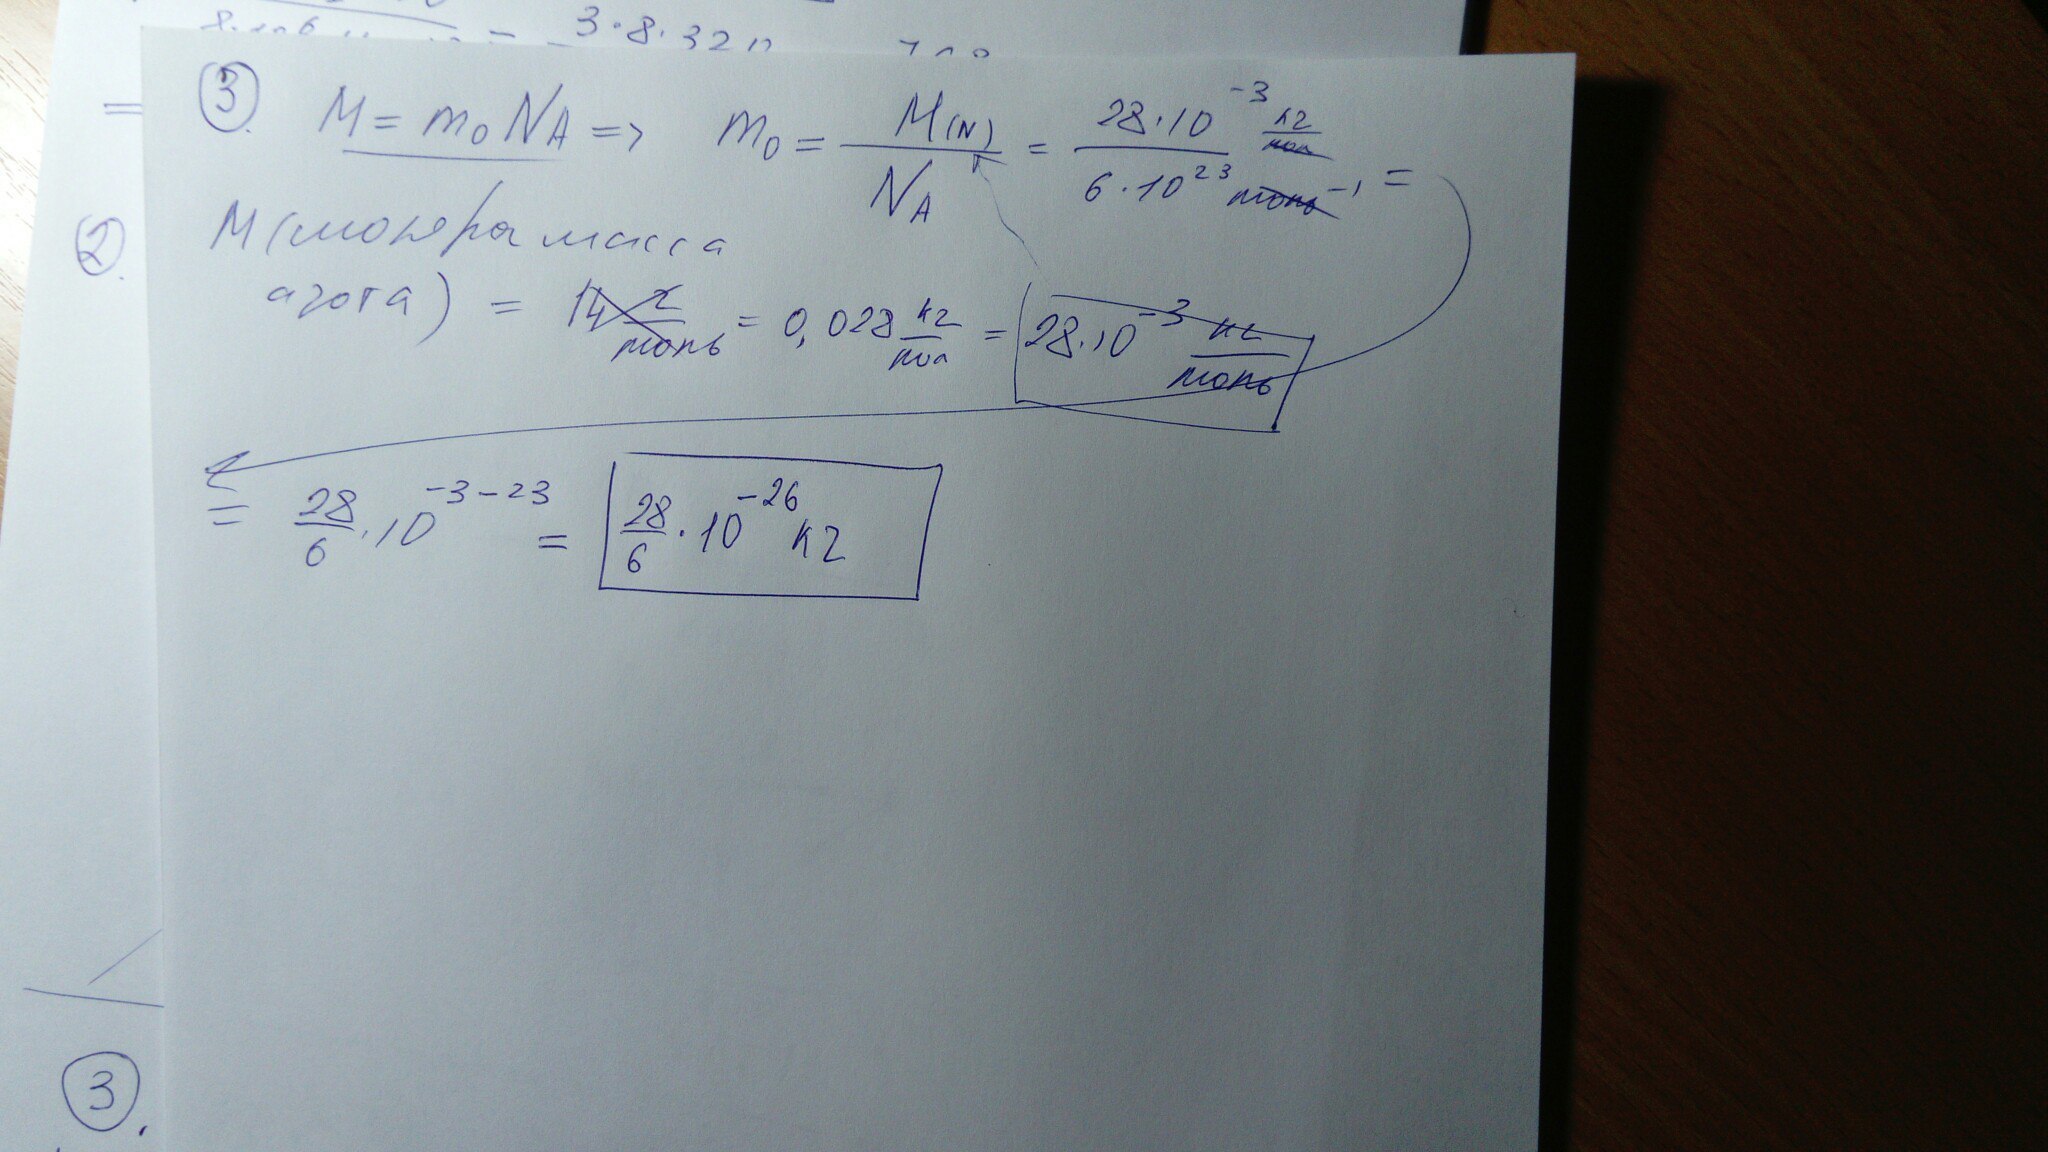 3·8·32
③. M = m₀ N_A => m₀ = M(N) / N_A = 28·10⁻³ кг/мол / 6·10²³ моль⁻¹ =
②.
M (молярная масса
азота) = 14 г/моль = 0,028 кг/мол = 28·10⁻³ кг/моль
= 28/6 · 10⁻³⁻²³ = 28/6 · 10⁻²⁶ кг
③.